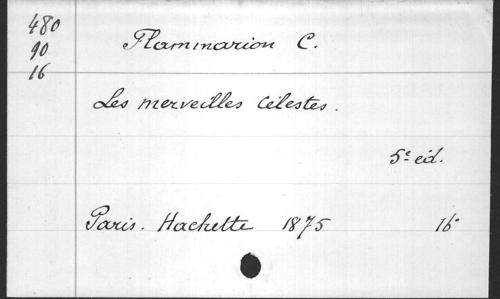 480
90
16
Flammarion C.
Les merveilles célestes.
5e éd.
Paris. Hachette 1875 16°